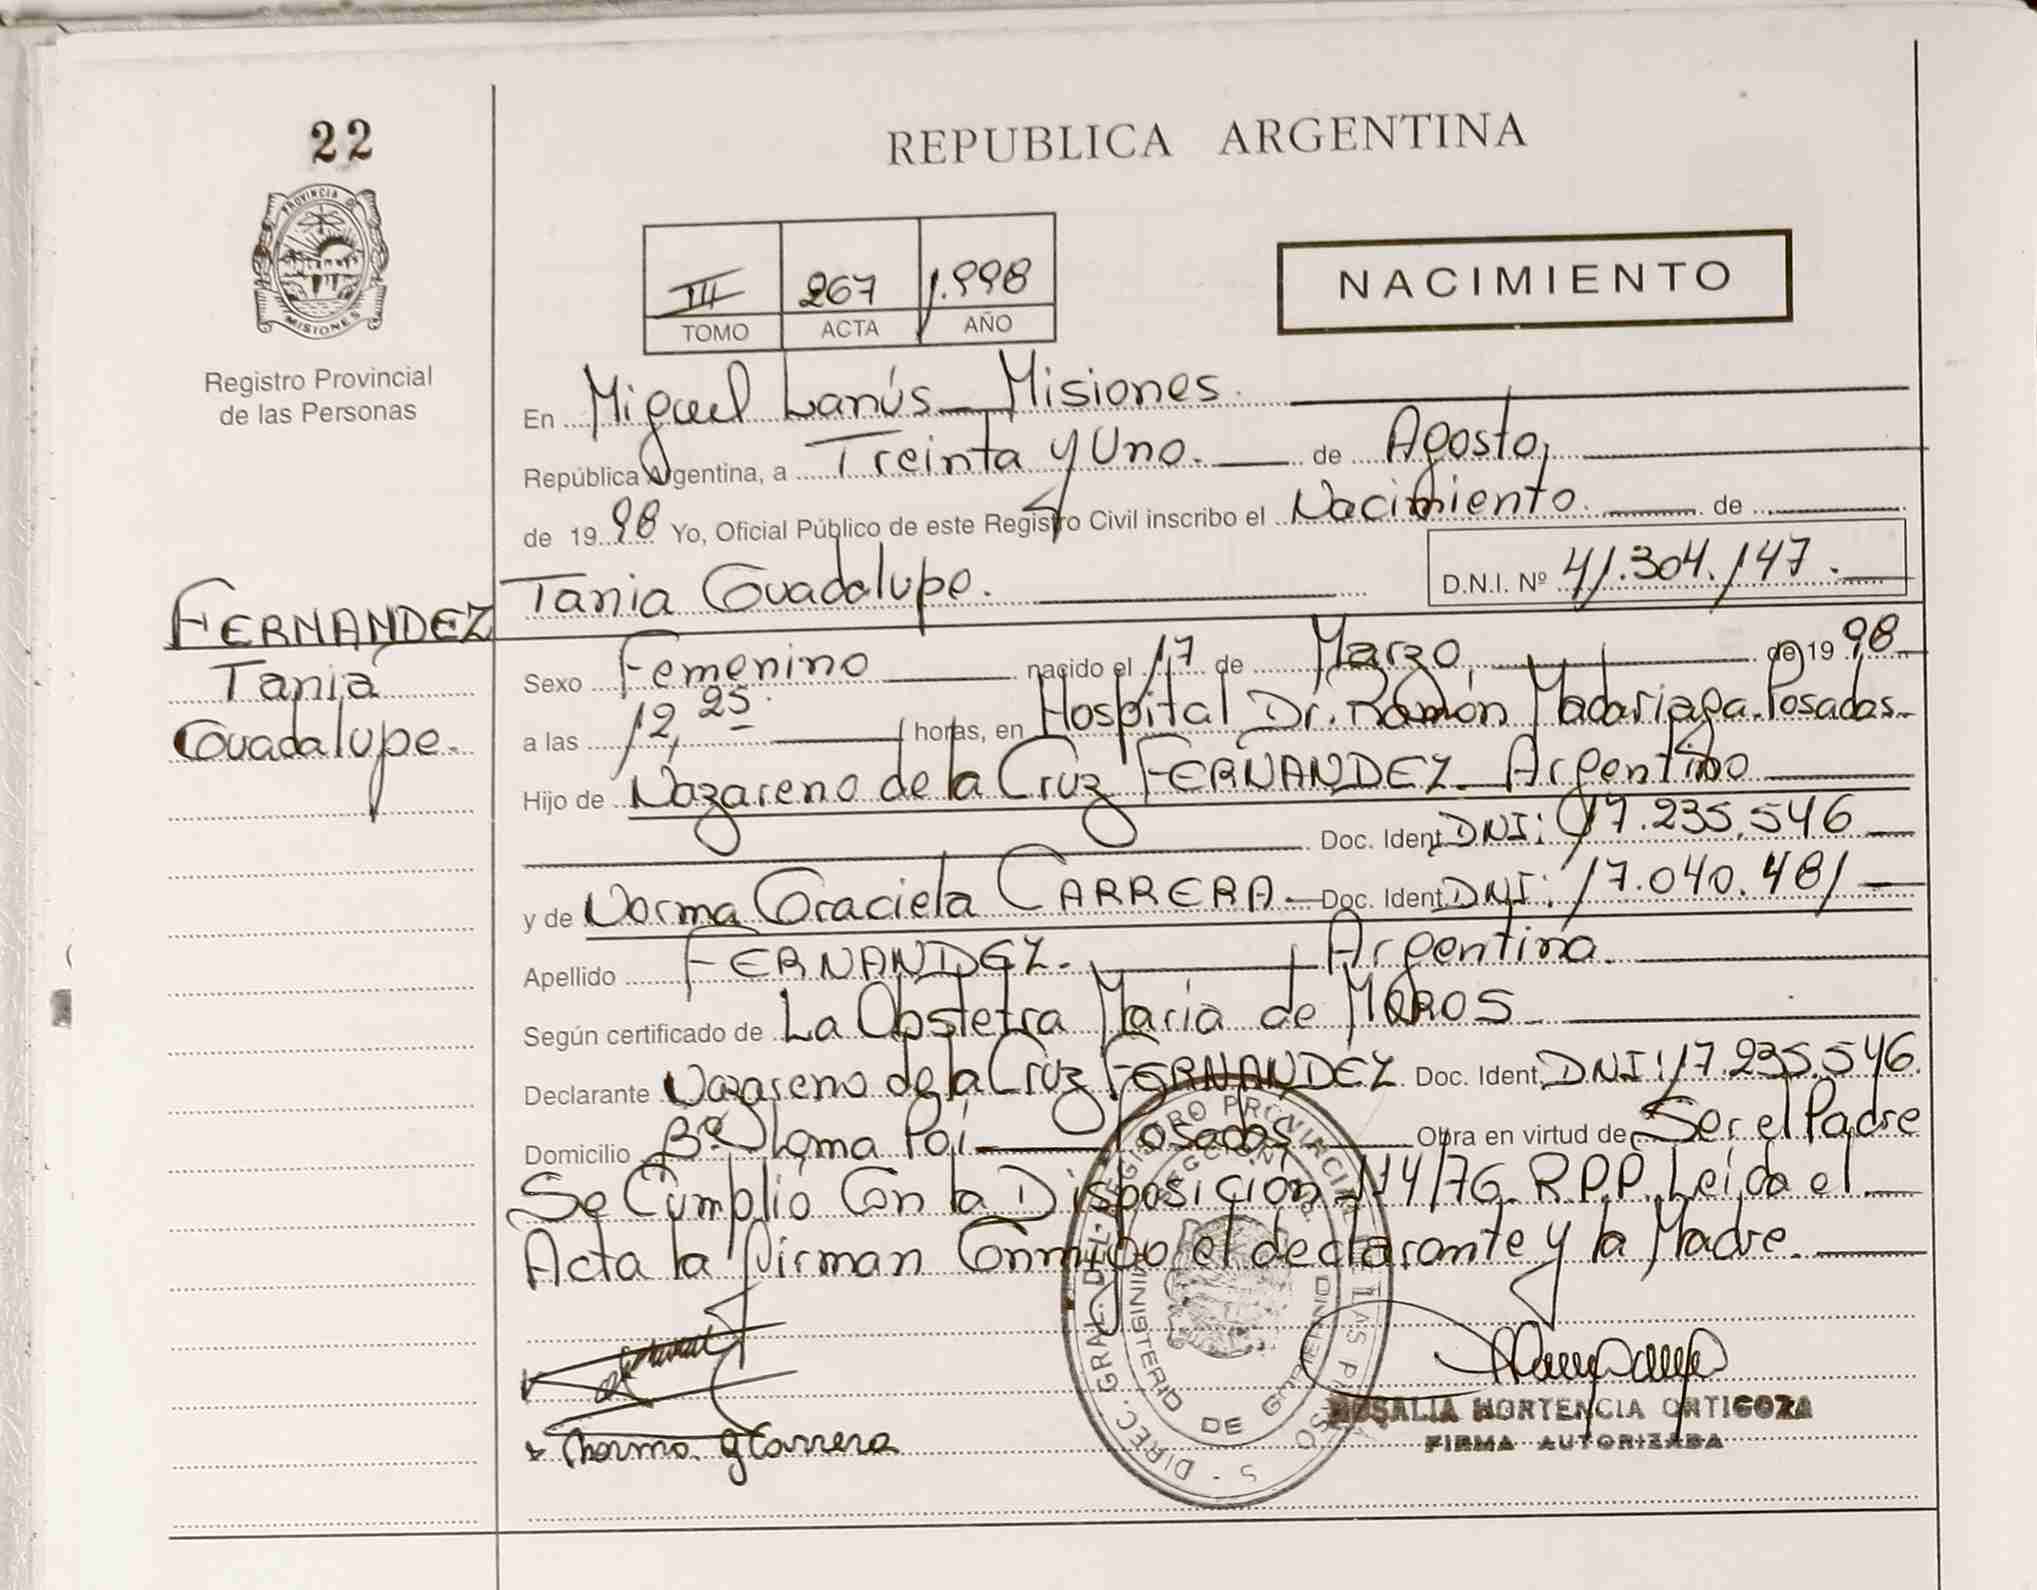 22
REPUBLICA ARGENTINA
PROVINCIA DE
MISIONES
Registro Provincial
de las Personas
III 267 1.998
TOMO ACTA AÑO
NACIMIENTO
En Miguel Lanús - Misiones.
República Argentina, a Treinta y Uno. de Agosto,
de 1998 Yo, Oficial Público de este Registro Civil inscribo el Nacimiento. de
Tania Guadalupe. D.N.I. Nº 41.304.147.
FERNANDEZ
Tania
Guadalupe.
Sexo Femenino nacido el 17 de Marzo, de 1998
a las 12,25 horas, en Hospital Dr. Ramón Madariaga. Posadas.
Hijo de Nazareno de la Cruz FERNANDEZ - Argentino
Doc. Ident. DNI: 17.235.546
y de Norma Graciela CARRERA - Doc. Ident. DNI: 17.040.481
Apellido FERNANDEZ. Argentina.
Según certificado de La Obstetra María de
Declarante Nazareno de la Cruz FERNANDEZ Doc. Ident. DNI: 17.235.546.
Domicilio Bº Loma Poí - Posadas Obra en virtud de Ser el Padre
Se Cumplió Con la Disposición 114/76 R.P.P. Leída el
Acta la firman Conmigo el declarante y la Madre.
DIREC. GRAL. DEL REGISTRO PROVINCIAL DE LAS PERSONAS
MINISTERIO DE GOBIERNO
Norma G Carrera
ROSALIA HORTENCIA ORTIGOZA
FIRMA AUTORIZADA